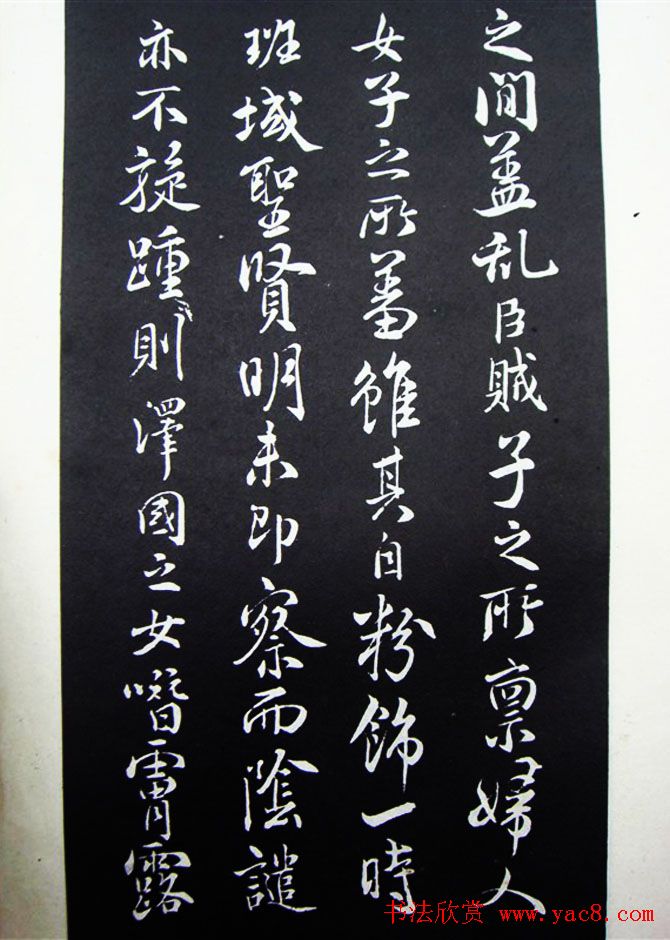 之間盖乱臣賊子之所禀婦人
女子之所蓄雖其自粉飾一時
班域聖賢明未即察而陰譴
亦不旋踵則澤國之女噆露
书法欣赏 www.yac8.com